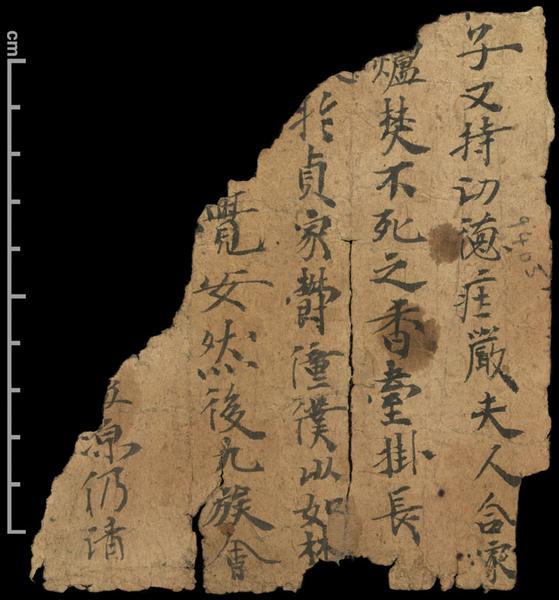 子又持功德庄嚴夫人合家
爐焚不死之香臺掛長
於貞家欝僮僕以如林
覺安然後九族會
凉仍請